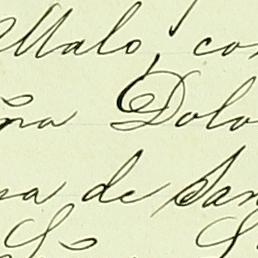 Malo, con
ña Dolo
na de San